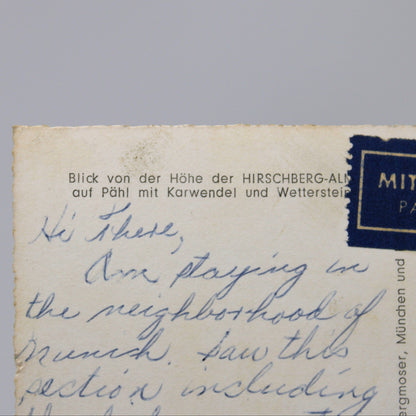 Blick von der Höhe der HIRSCHBERG-AL
auf Pähl mit Karwendel und Wetterstein
MIT
PA
Hi There,
Am staying in
the neighborhood of
Munich. Saw this
section including
ergmoser, München und